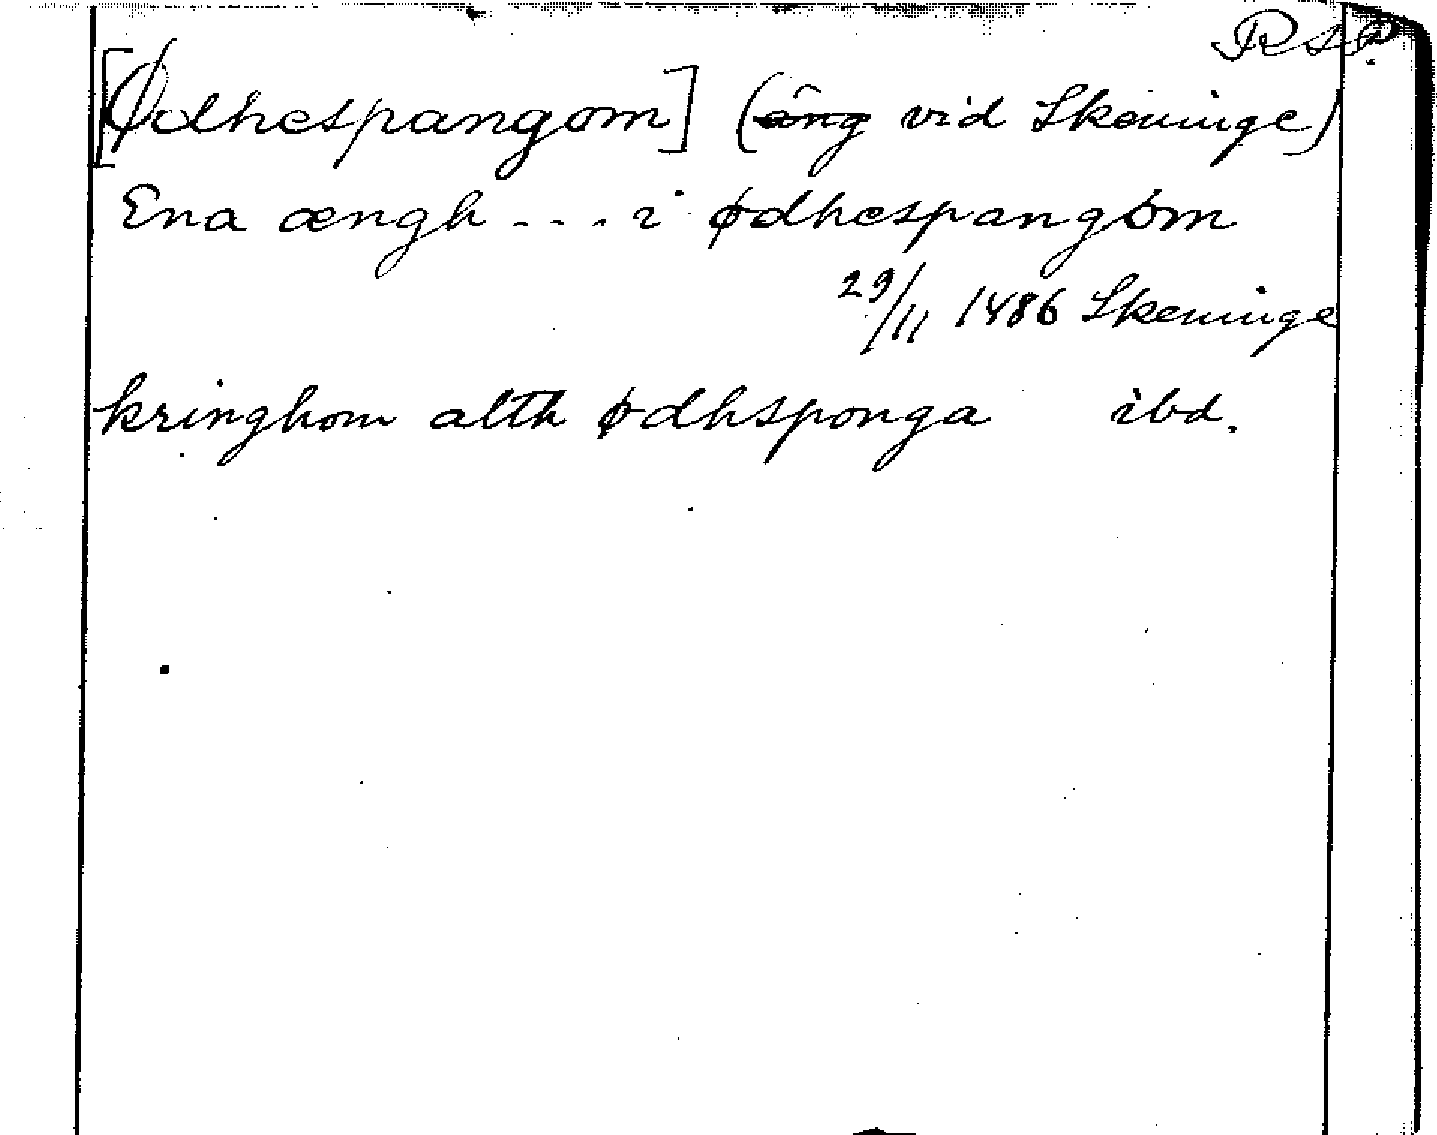 RSP.
[Ødhespangom] (äng vid Skeninge)
Ena ængh - - - i ødhespangom
29/11 1486 Skeninge
kringhom alth ødhsponga ibd.